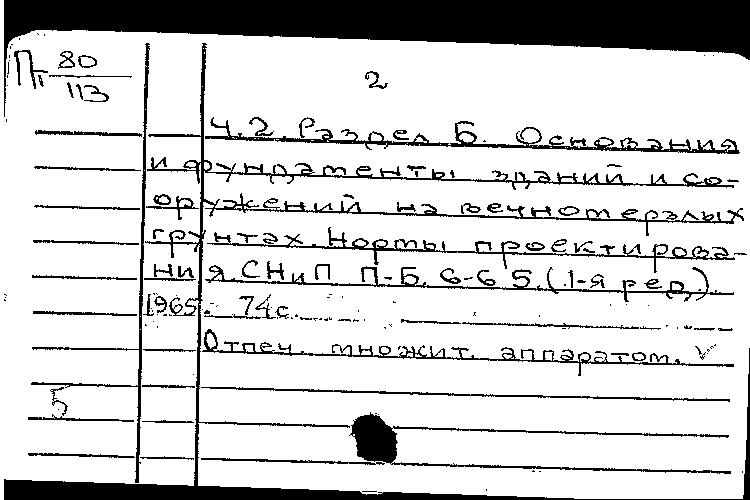 Пп 80
113
2
Ч.2. Раздел Б. Основания
и фундаменты зданий и со-
оружений на вечномерзлых
грунтах. Нормы проектирова-
ния. СНиП П-Б. 6-65. (1-я ред.).
1965. 74с.
Отпеч. множит. аппаратом. ✓
5